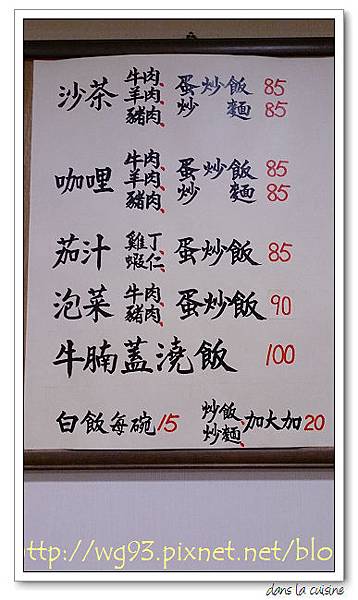 沙茶 牛肉、羊肉、豬肉、 蛋炒飯 85
炒麵 85
咖哩 牛肉、羊肉、豬肉、 蛋炒飯 85
炒麵 85
茄汁 雞丁、蝦仁、 蛋炒飯 85
泡菜 牛肉、豬肉、 蛋炒飯 90
牛腩蓋澆飯 100
白飯每碗15 炒飯、炒麵、加大加20
http://wg93.pixnet.net/blo
dans la cuisine